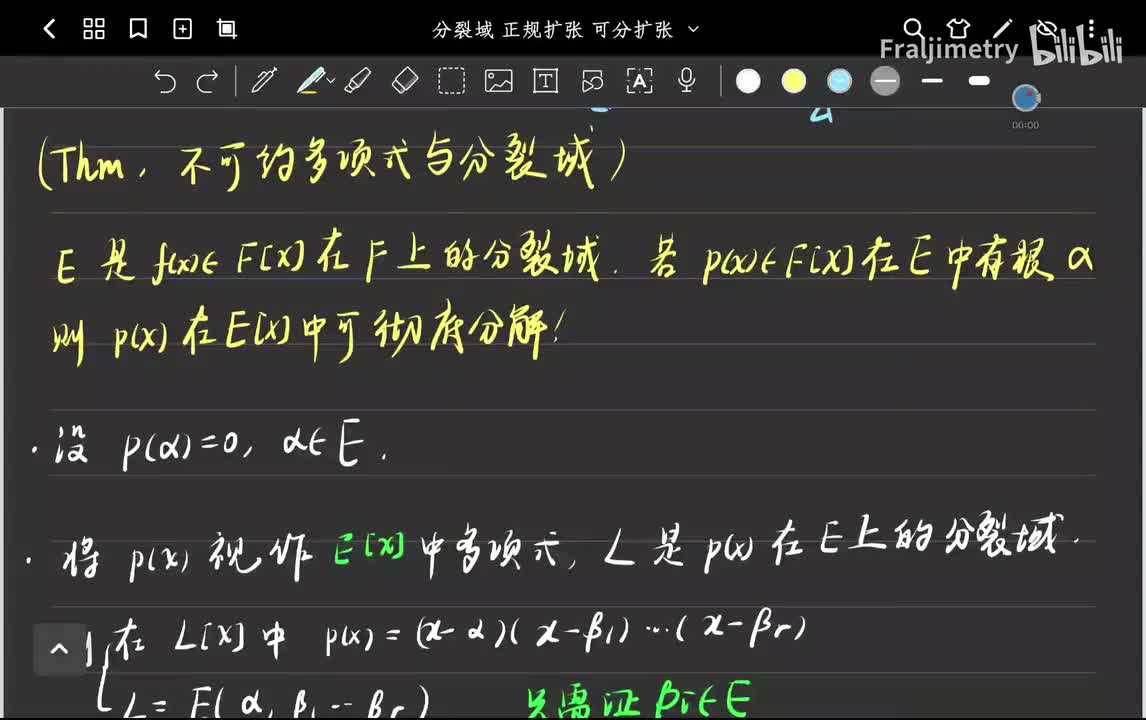 分裂域 正规扩张 可分扩张
Fraljimetry bilibili
00:00
(Thm, 不可约多项式与分裂域)
E 是 f(x)∈ F[X] 在 F 上的分裂域. 若 p(x)∈F[X] 在 E 中有根 α
则 p(x) 在 E[X] 中可彻底分解!
· 设 p(α)=0, α∈E.
· 将 p(x) 视作 E[x] 中多项式, L 是 p(x) 在 E 上的分裂域.
在 L[X] 中 p(x) = (x-α)(x-β₁)···(x-βr)
L = E(α, β₁ ··· βr) 只需证 βi∈E